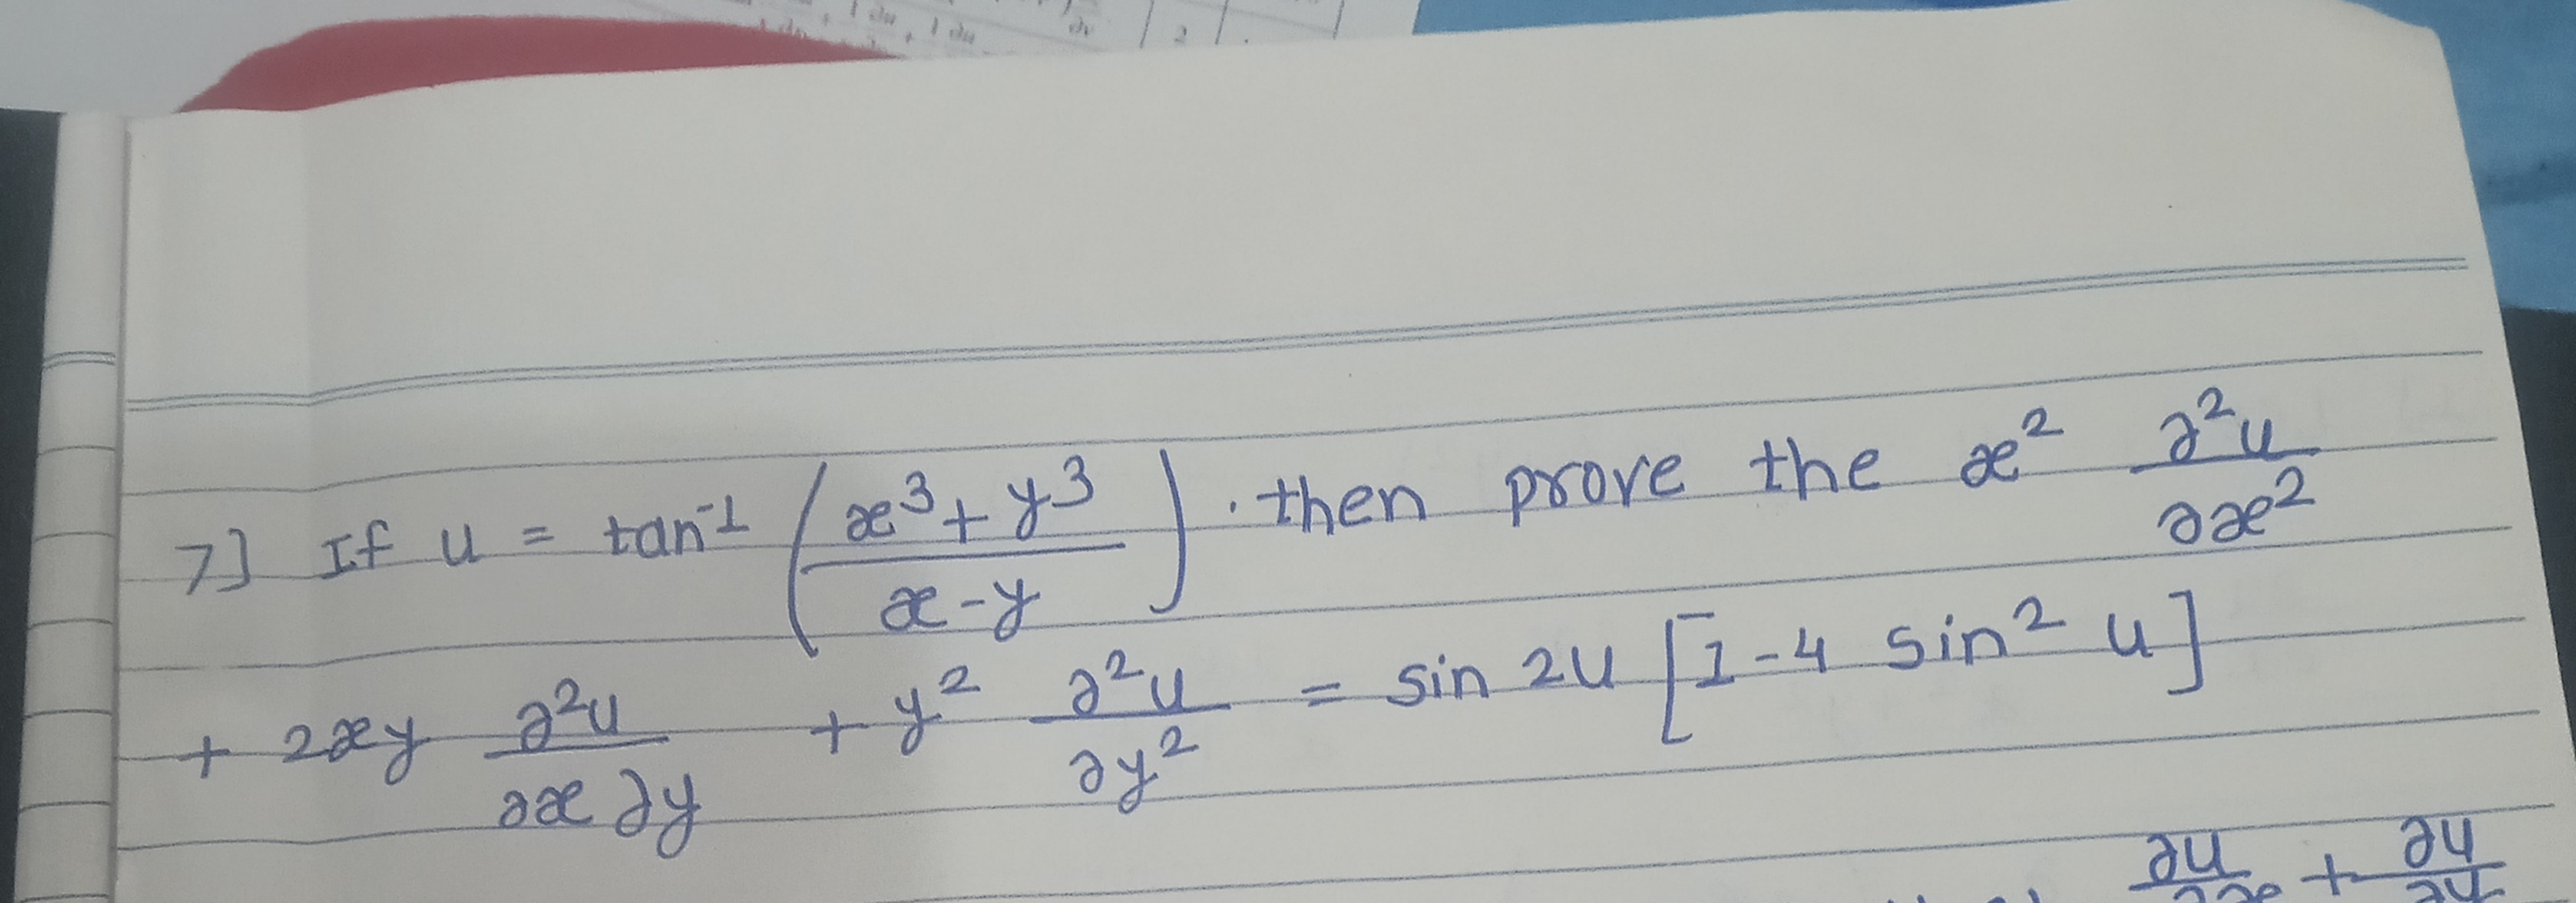 ∂u + 1 ∂u
∂v 2
7] If u = tan⁻¹ (x³ + y³ / x - y) . then prove the x² ∂²u/∂x²
+ 2xy ∂²u/∂x ∂y + y² ∂²u/∂y² = sin 2u [1 - 4 sin² u]
∂u/∂x + ∂u/∂y